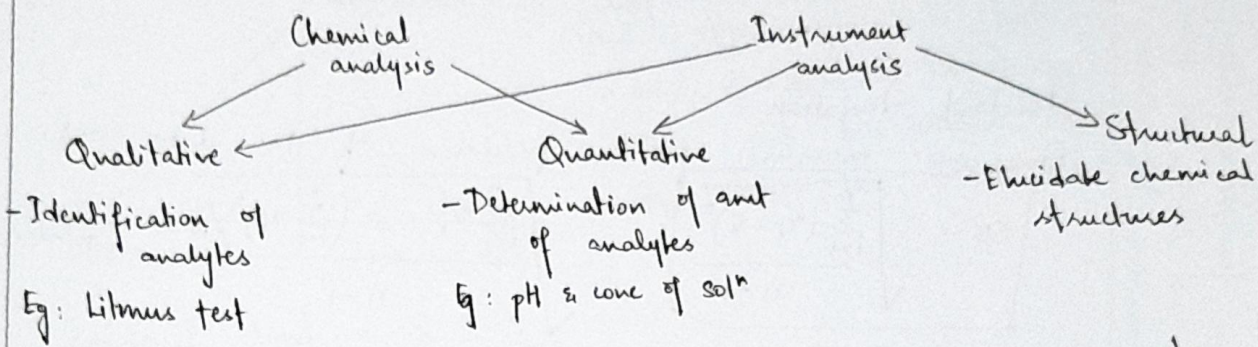 Chemical
analysis
Instrument
analysis
Qualitative
- Identification of
analytes
Eg: Litmus test
Quantitative
- Determination of amt
of analytes
Eg: pH & conc of solⁿ
Structural
- Elucidate chemical
structures